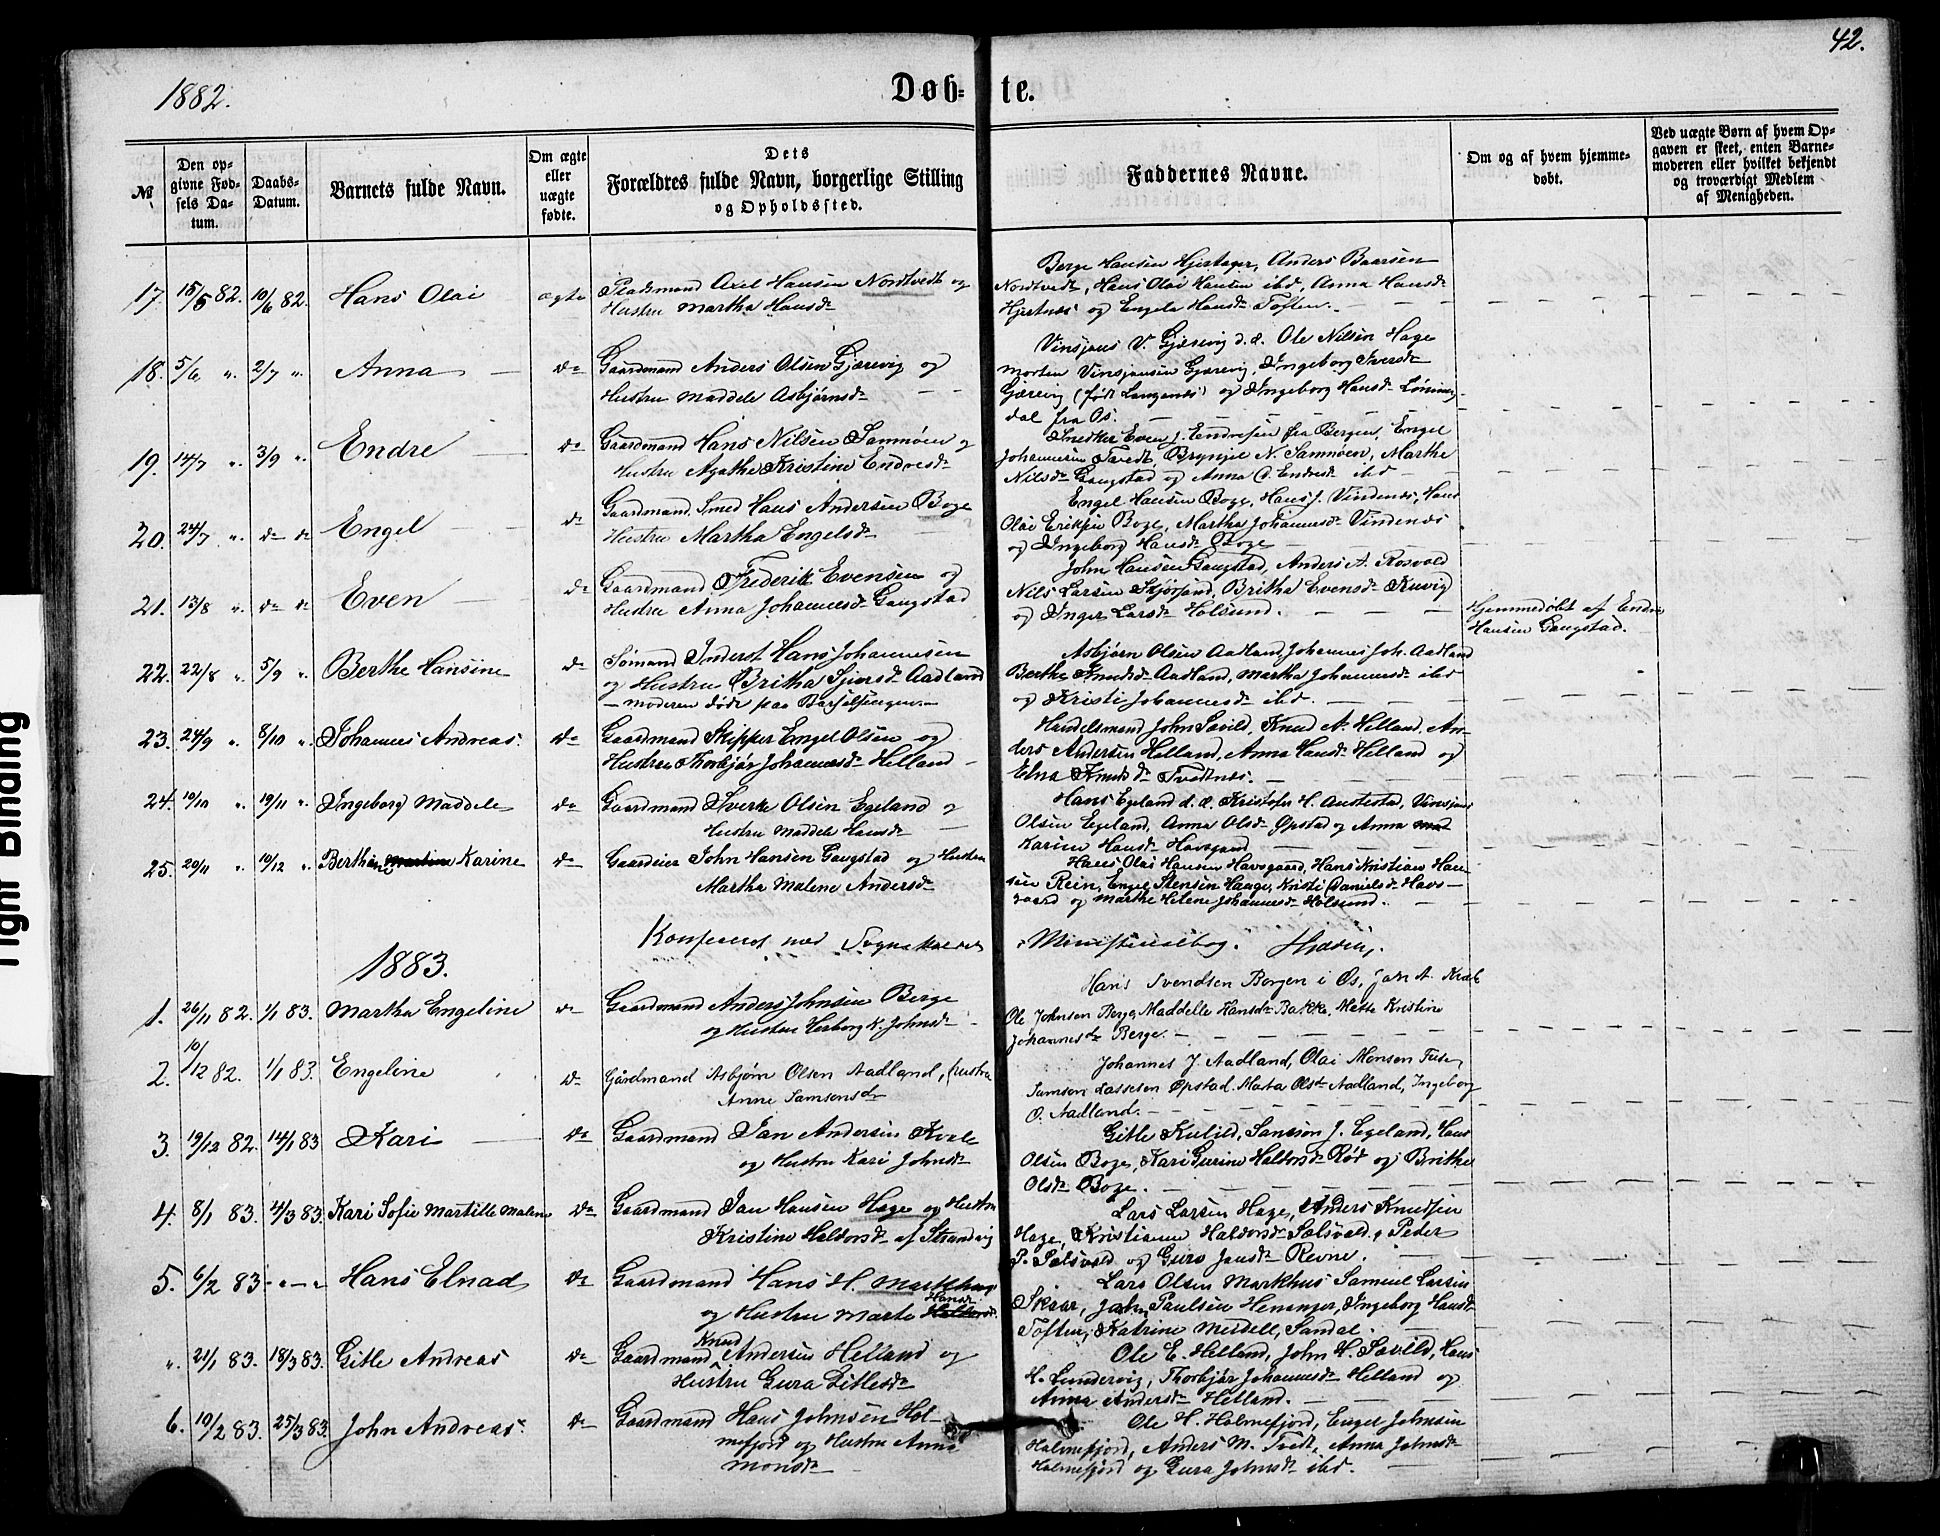 42.
1882.
Døb- te.
№
Den opgivne Fødsels Datum.
Daabs-Datum.
Barnets fulde Navn.
Om ægte eller uægte fødte.
Dets Forældres fulde Navn, borgerlige Stilling og Opholdssted.
Faddernes Navne.
Om og af hvem hjemmedøbt.
Ved uægte Børn af hvem Opgaven er skeet, enten Barnemoderen eller hvilket bekjendt og troværdigt Medlem af Menigheden.
17. 15/5 82. 10/6 82. Hans Olai ægte Pladsmand Axel Hansen Nordtvedt og
Hustru Martha Hansd.
Berge Hansen Hjertager, Anders Baarsen
Nordtvedt, Hans Olai Hansen ibd, Anna Hansd.
Hjertnes og Engela Hansd. Toften.
18. 5/6 " 2/7 " Anna do Gaardmand Anders Olsen Gjærevig og
Hustru Maddele Asbjørnsd.
Vinsjans V. Gjærevig d. e. Ole Nilsen Hage
Morten Vinsjansen Gjærevig, Ingeborg Iversd.
Gjærevig (født Langenes) og Ingeborg Hansd. Løning
dal fra Os.
19. 14/7 " 3/9 " Endre do Gaardmand Hans Nilsen Samnøen og
Hustru Agathe Kristine Endresd.
Snedker Even J. Endresen fra Bergen, Engel
Johannesen Tvedt, Brynjel N. Samnøen, Marthe
Nilsd. Gangstad og Anna C. Endresd. ibd
20. 24/7 " do do Engel do Gaardmand, Smed Hans Andersen Boge
Hustru Martha Engelsd.
Engel Hansen Boge, Hans J. Vindenes, Hans
Olai Eriksen Boge, Martha Johannesd. Vindenes
og Ingeborg Hansd. Boge
21. 13/8 " do do Even do Gaardmand Frederik Evensen og
Hustru Anna Johannesd. Gangstad
John Hansen Gangstad, Anders A. Rosvold
Nils Larsen Skjørsand, Britha Evensd. Kuvig
og Inger Larsd. Holsund.
Hjemmedøbt af Endre
Hansen Gangstad.
22. 22/8 " 5/9 " Berthe Hansine do Sømand Inderst Hans Johannesen
og Hustru Britha Sjursd. Aadland
- moderen døde paa Barselsengen. -
Asbjørn Olsen Aadland, Johannes Joh. Aadland
Berthe Knudsd. Aadland, Martha Johannesd. ibd
og Kristi Johannesd. ibd.
23. 24/9 " 8/10 " Johannes Andreas. do Gaardmand Skipper Engel Olsen og
Hustru Thorbjør Johannesd. Helland
Handelsmand John Søvild, Knud A. Helland, An-
ders Andersen Helland, Anna Hansd. Helland og
Elna Knudsd. Tvedtnes.
24. 19/10 " 19/11 " Ingeborg Maddele do Gaardmand Sverke Olsen Egeland og
Hustru Maddele Hansd.
Hans Egeland d. e. Kristofer H. Austestad, Vinsjans
Olsen Egeland, Anna Olsd. Øpstad og Anna
Karine Hansd. Havsgaard
25. 20/11 " 10/12 " Berthine Martine Karine do Gaardeier John Hansen Gangstad og Hustru
Martha Malene Andersd.
Hans Olai Hansen Havsgaard, Hans Kristian Han-
sen Rein, Engel Stensen Hauge, Kristi Danielsd. Havs-
gaard og Marthe Helene Johannesd. Holsund.
Konfereret med Sognekaldets Ministerialbog.
1883.
1. 26/11 82. 1/1 83. Martha Engeline do Gaardmand Anders Johnsen Berge
og Hustru Herborg K. Johnsd.
Hans Svendsen Borgen i Os, Jan A. Kvale
Ole Johnsen Berge, Maddelle Hansdr Bakke, Mette Kristine
Johannesdr Berge.
2. 10/12 82. 1/1 83. Engeline do Gårdmand Asbjørn Olsen Aadland, Hustru
Anne Samsonsdr
Johannes J. Aadland, Olai Monsen Fuse,
Samson Lassesen Øpstad. Marta Olsdr Aadland, Ingeborg
O. Aadland.
3. 19/12 82. 14/1 83 Kari do Gaardmand Jan Andersen Kvale
og Hustru Kari Johnsd.
Gitle Kulild, Samson J. Egeland, Hans
Olsen Boge, Kari Gurine Haldorsd. Rød og Brithe
Olsd. Boge.
4. 8/1 83. 4/3 83. Kari Sofie Martille Malene do Gaardmand Jan Hansen Hage og Hustru
Kristine Haldorsd. af Strandvig
Lars Larsen Hage, Anders Knudsen
Hage, Kristianne Haldorsd. Sølsvold, Peder
P. Sølsvold og Guro Jansd. Revne.
5. 6/2 83 - " - " Hans Elnad do Gaardmand Hans H. Markhus
og Hustru Marte Haldorsd. Hansd.
Lars Olsen Markhus Samuel Larsen
Skaar, John Paulsen Henanger, Ingeborg Hansd.
Toften, Katrine Meidell, Sandal.
". 21/1 83. 18/3 83. Gitle Andreas do Gaardmand Knud Andersen Helland og
Hustru Gura Gitlesd.
Ole E. Helland, John H. Søvild, Hans
H. Lundervig, Thorbjør Johannesd. Helland og
Anna Andersd. Helland.
6. 19/2 83. 25/3 83. John Andreas. do Gaardmand Hans Johnsen Hol-
mefjord og Hustru Anna
Monsd.
Ole H. Holmefjord, Engel Johnsen
Holmefjord, Anders M. Tvedt, Anna Johnsd.
Holmefjord og Gura Johnsd. ibd.
Tight Binding